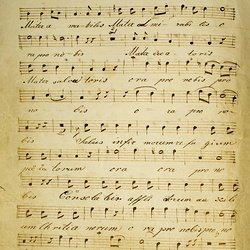 Mater a ma bilis Mater ad mi rabi lis o
ra pro no bis Mater Crea toris
Mater salva toris ora pro nobis pro
bis o ra pro
bis Salus infir morum re fu gium
pec ca torum ora ora pro no
bis Conso la trix affli
um Christia norum o ra pro nobis pro no